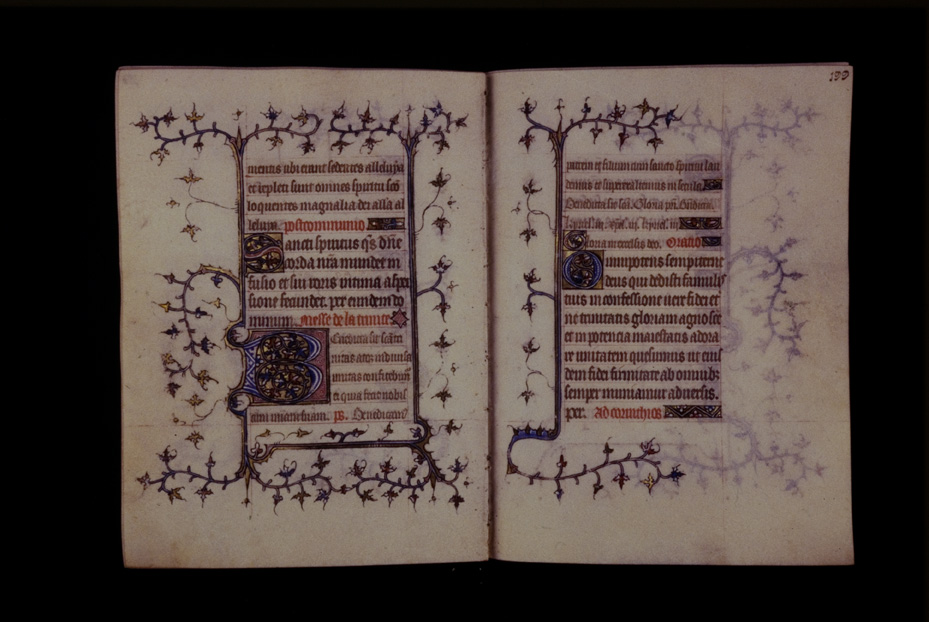 mentus ubi erant sedentes alleluya
et repleti sunt omnes spiritu sco
loquentes magnalia dei alla al
leluya. postcommunio
Sancti spiritus qs dne
corda nra mundet in
fusio et sui roris intima asper
sione fecundet. per eiusdem do
minum. Messe de la trinite
Benedicta sit sancta
trinitas atque indivisa
unitas confitebimur
ei quia fecit nobis
cum misericordiam. ps. Benedicamus
133
patrem et filium cum sancto spiritu lau
demus et superexaltemus in secula
Benedicta sit sca. Gloria pri. Benedicta.
kyriel. iij. xpel. iij. kyriel. iij.
Gloria in excelsis deo. Oratio
Omnipotens sempiterne
deus qui dedisti famulis
tuis in confessione vere fidei et
ne trinitatis gloriam agnosce
et in potencia maiestatis adora
re unitatem quesumus ut eius
dem fidei firmitate ab omnibz
semper muniamur adversis.
per. Ad corinthios